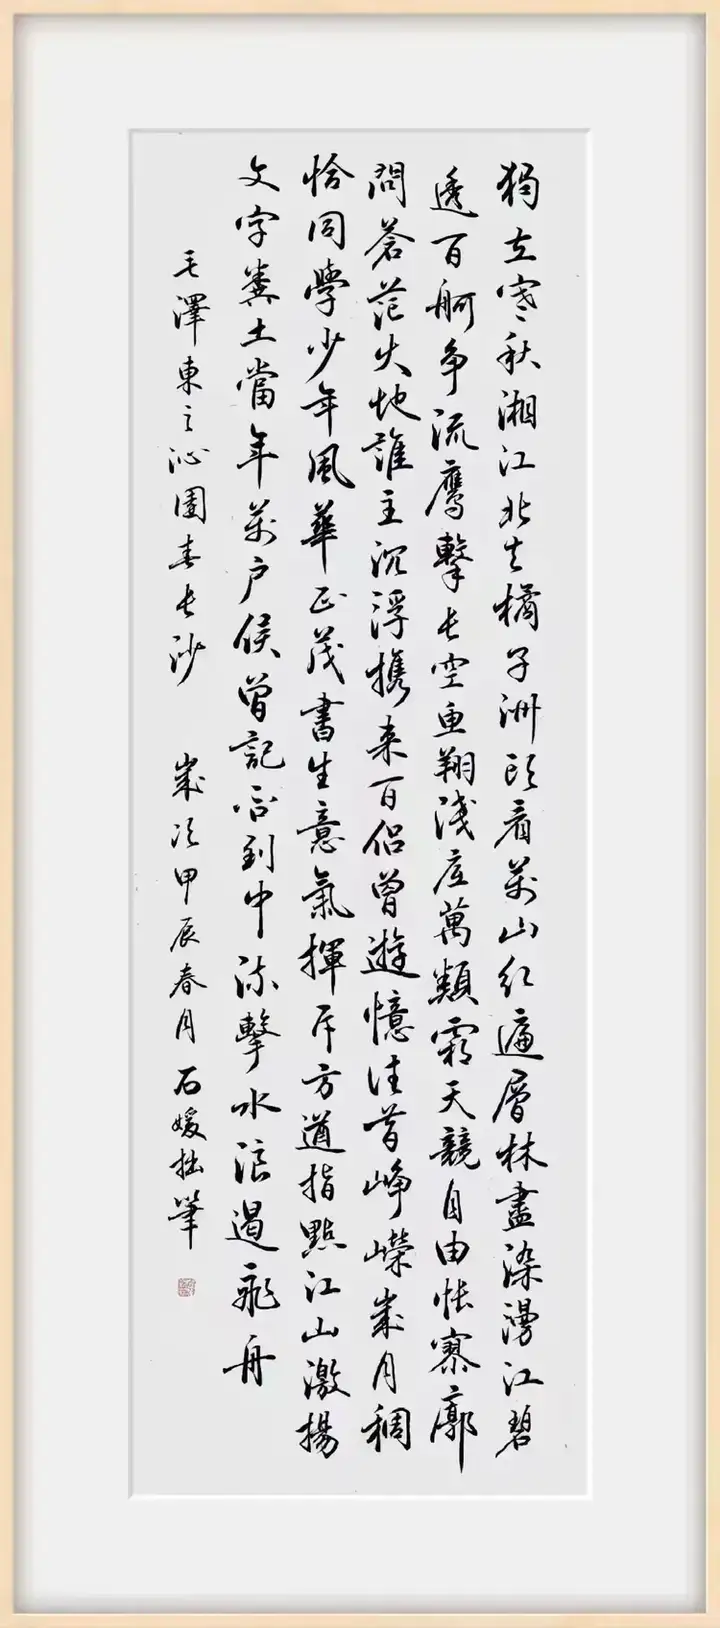 獨立寒秋湘江北去橘子洲頭看萬山紅遍層林盡染漫江碧
透百舸争流鷹擊長空魚翔淺底萬類霜天競自由悵寥廓
問蒼茫大地誰主沉浮攜来百侣曾遊憶往昔崢嶸歲月稠
恰同學少年風華正茂書生意氣揮斥方遒指點江山激揚
文字糞土當年萬户侯曾記否到中流擊水浪遏飛舟
毛澤東之沁園春長沙 歲次甲辰春月石媛拙筆